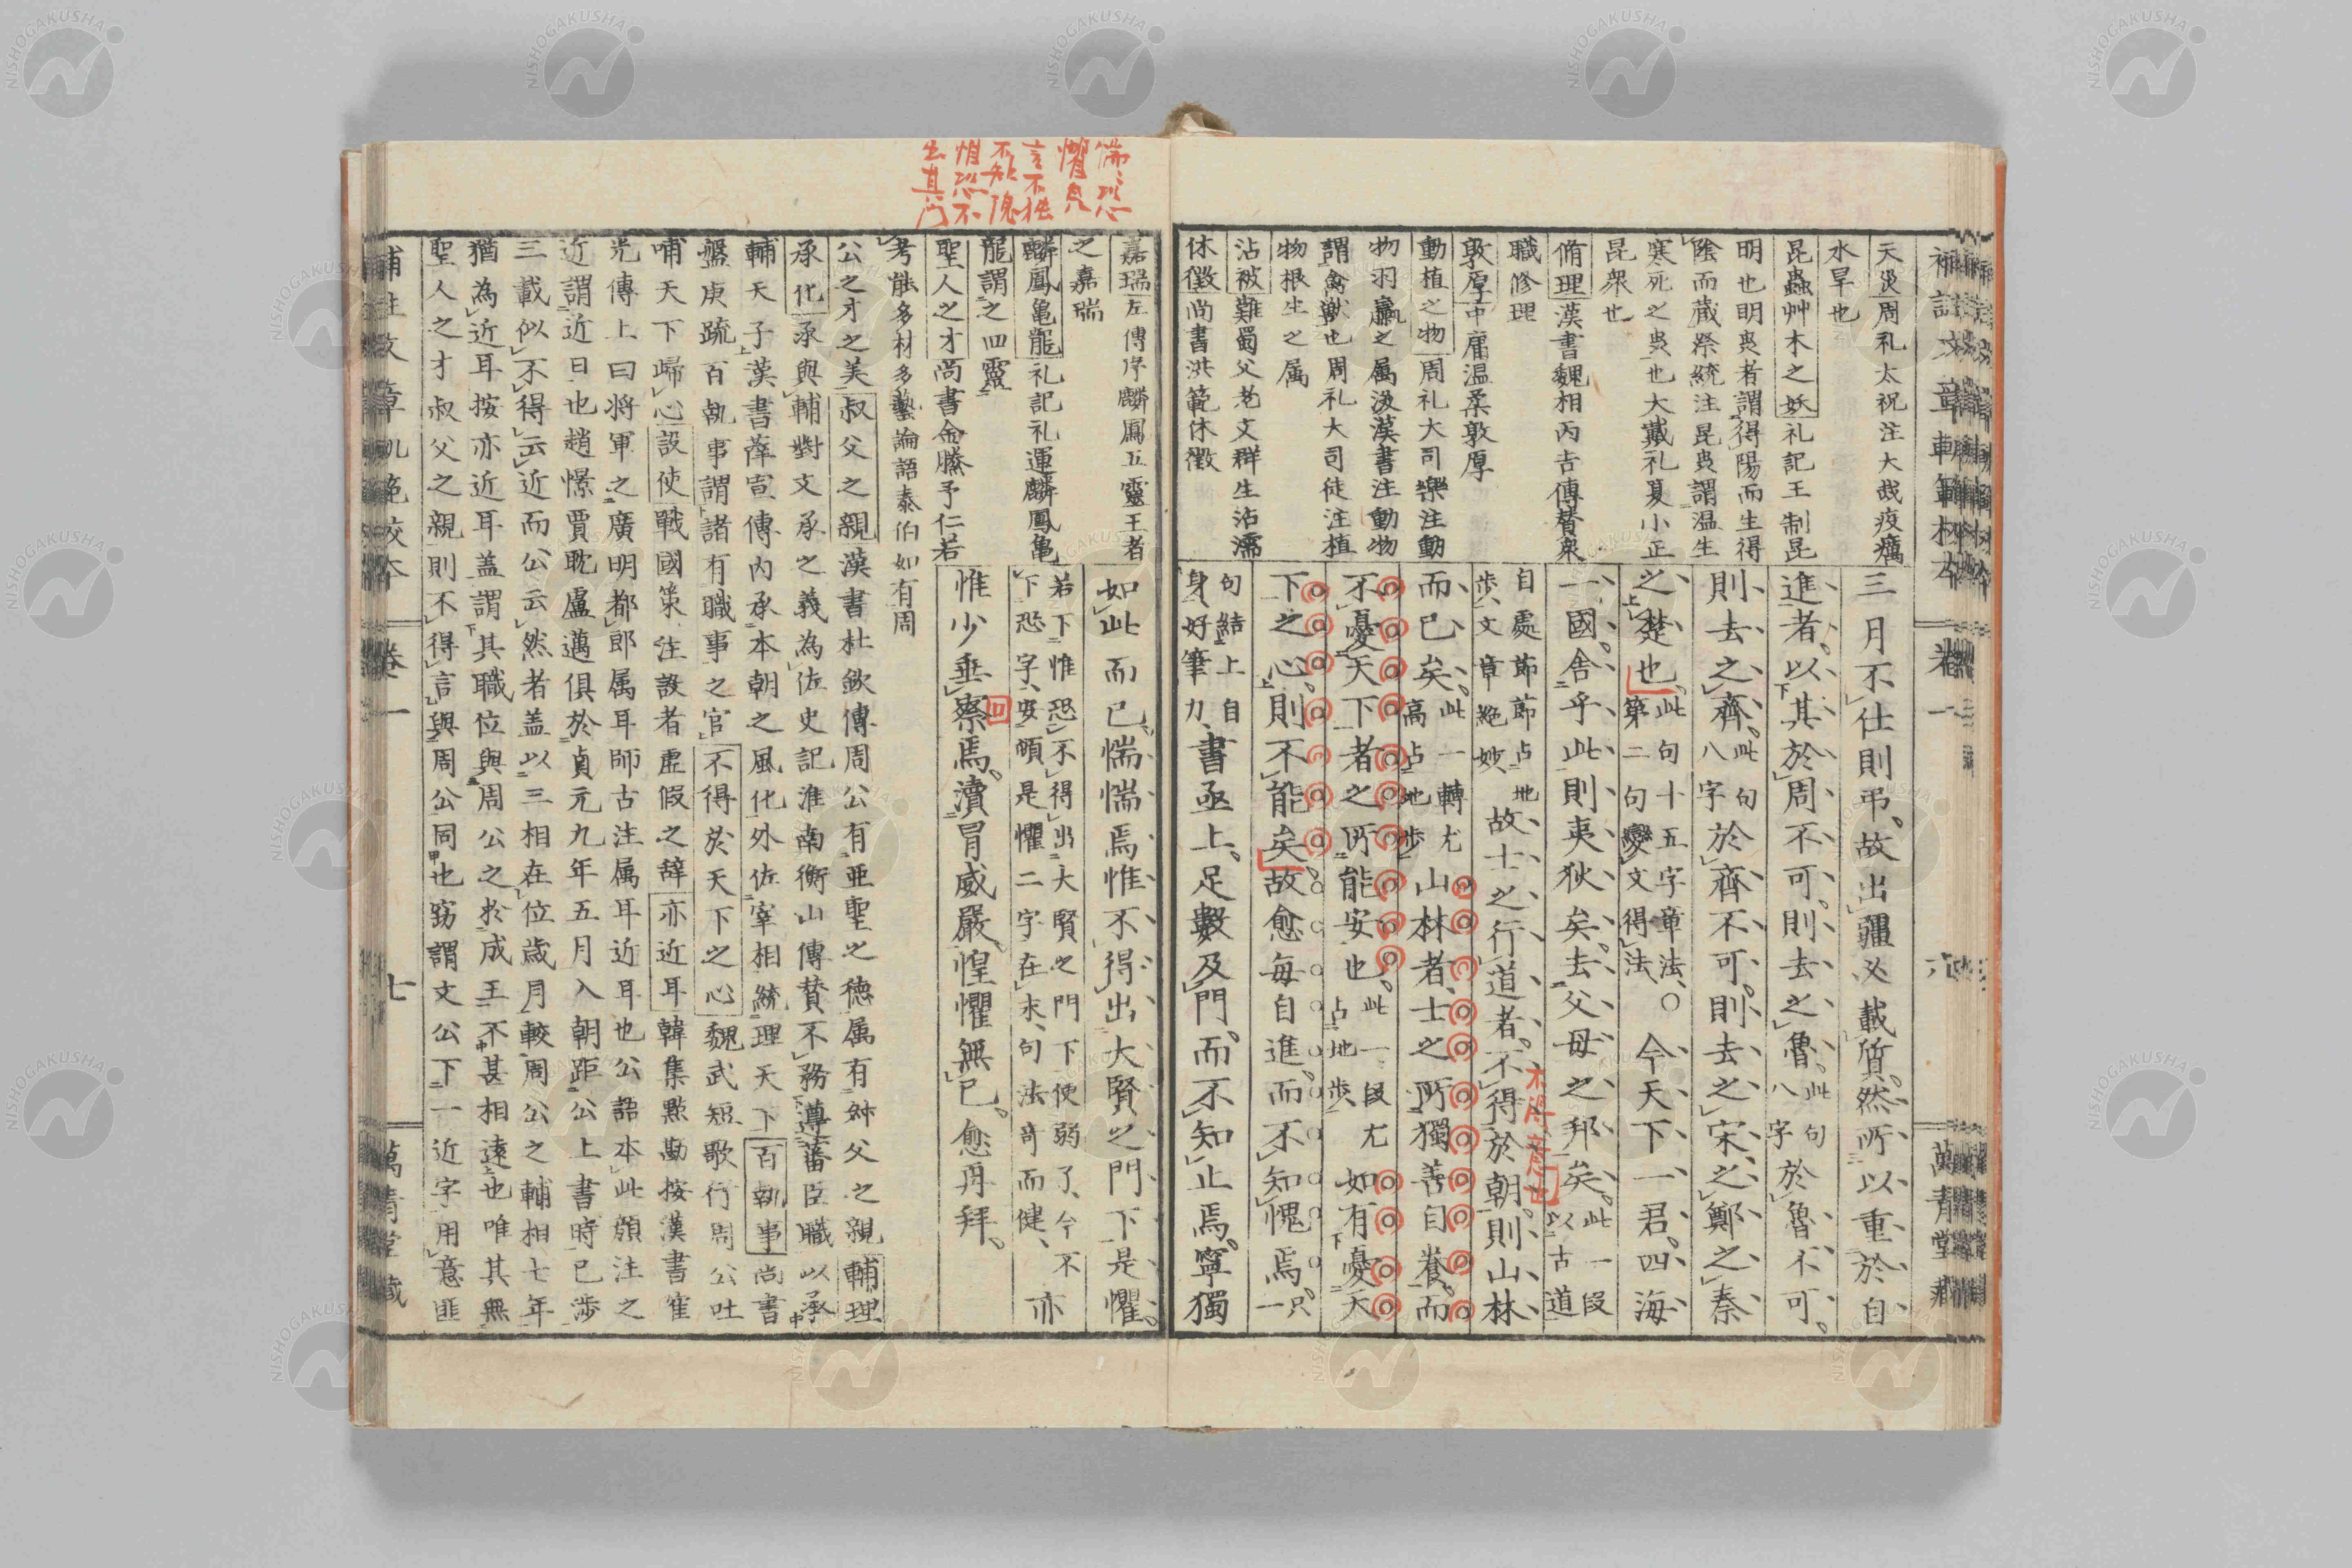 補註文章軌範校本 卷一 六 萬青堂藏
天災周礼太祝注大烖疫癘
水旱也
昆蟲艸木之妖礼記王制昆
明也明䖝者謂得陽而生得
陰而藏祭統注昆䖝謂温生
寒死之䖝也大戴礼夏小正
昆衆也
脩理漢書魏相丙吉傳賛衆
職修理
敦厚中庸温柔敦厚
動植之物周礼大司樂注動
物羽臝之属汲漢書注動物
謂禽獸也周礼大司徒注植
物根生之属
沾被難蜀父老文群生沾濡
休徴尚書洪範休徴
三月不仕則弔。故出疆必載質。然所以重於自
進者。以其於周不可。則去之魯。此句八字於魯不可。
則去之齊。此句八字於齊不可。則去之宋、之鄭、之秦、
之楚也。此句十五字章法、第二句變文得法、〇今天下一君。四海
一國。舍乎此則夷狄矣。去父母之邦矣。此一段以古道
自處節節占地歩、文章絶妙故士之行道者。不得於朝。則山林
而已矣。此一轉尤高占地歩山林者、士之所獨善自養。而
不憂天下者之所能安也。此一段尤占地歩如有憂天
下之心。則不能矣。故愈每自進。而不知愧焉。只一
句結上自身、好筆力、書亟上、足數及門。而不知止焉。寧獨
不得意也
惴々恐
懼皃
言不独
不知愧
惟恐不
出其門
嘉瑞左傳序麟鳳五靈王者
之嘉瑞
麟鳳亀龍礼記礼運麟鳳亀
龍謂之四靈
聖人之才尚書金縢予仁若
考能多材多藝論語泰伯如有周
如此而已。惴惴焉惟不得出大賢之門下是懼。
若下惟恐不得出大賢之門下便弱了、今不下恐字、安頓是懼二字在末、句法奇而健、亦
惟少垂察焉。瀆冒威嚴。惶懼無已。愈再拜。
回
公之才之美叔父之親漢書杜欽傳周公有亜聖之徳属有叔父之親輔理
承化承與輔對文承之義為佐史記淮南衡山傳賛不務遵蕃臣職以承
輔天子漢書薛宣傳内承本朝之風化外佐宰相統理天下百執事尚書
盤庚疏百執事謂諸有職事之官不得於天下之心魏武短歌行周公吐
哺天下歸心設使戰國策注設者虚假之辞亦近耳韓集點勘按漢書霍
光傳上曰将軍之廣明都郎属耳師古注属耳近耳也公語本此顔注之
近謂近日也趙憬賈耽盧邁俱於貞元九年五月入朝距公上書時已渉
三載似不得云近而公云然者盖以三相在位歳月較周公之輔相七年
猶為近耳按亦近耳盖謂其職位與周公之於成王不甚相遠也唯其無
聖人之才叔父之親則不得言與周公同也窃謂文公下一近字用意匪
補註文章軌範校本 卷一 七 萬青堂藏
NISHOGAKUSHA